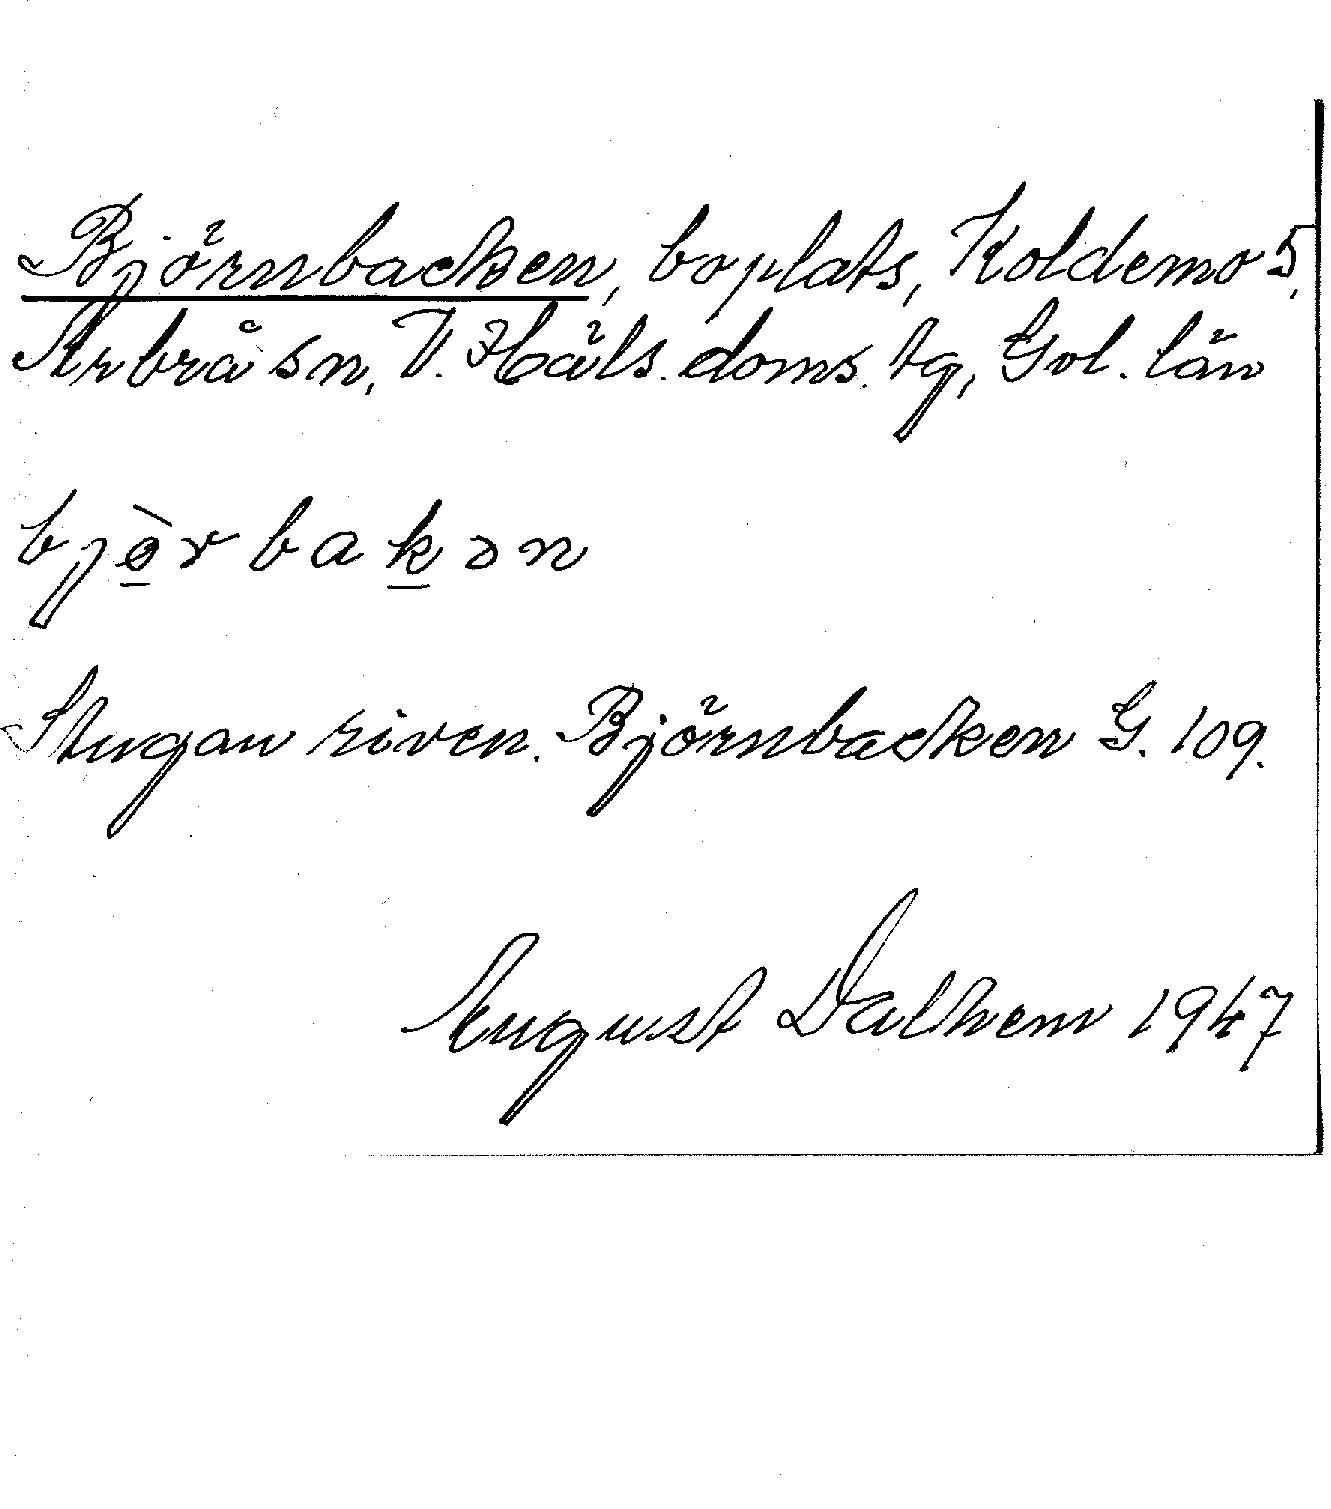 Björnbacken, boplats, Koldemo 5,
Arbrå sn, V. Häls. doms. tg, Gvl. län
bjə̀rbakən
Stugan riven. Björnbacken G. 109.
August Dalhem 1947